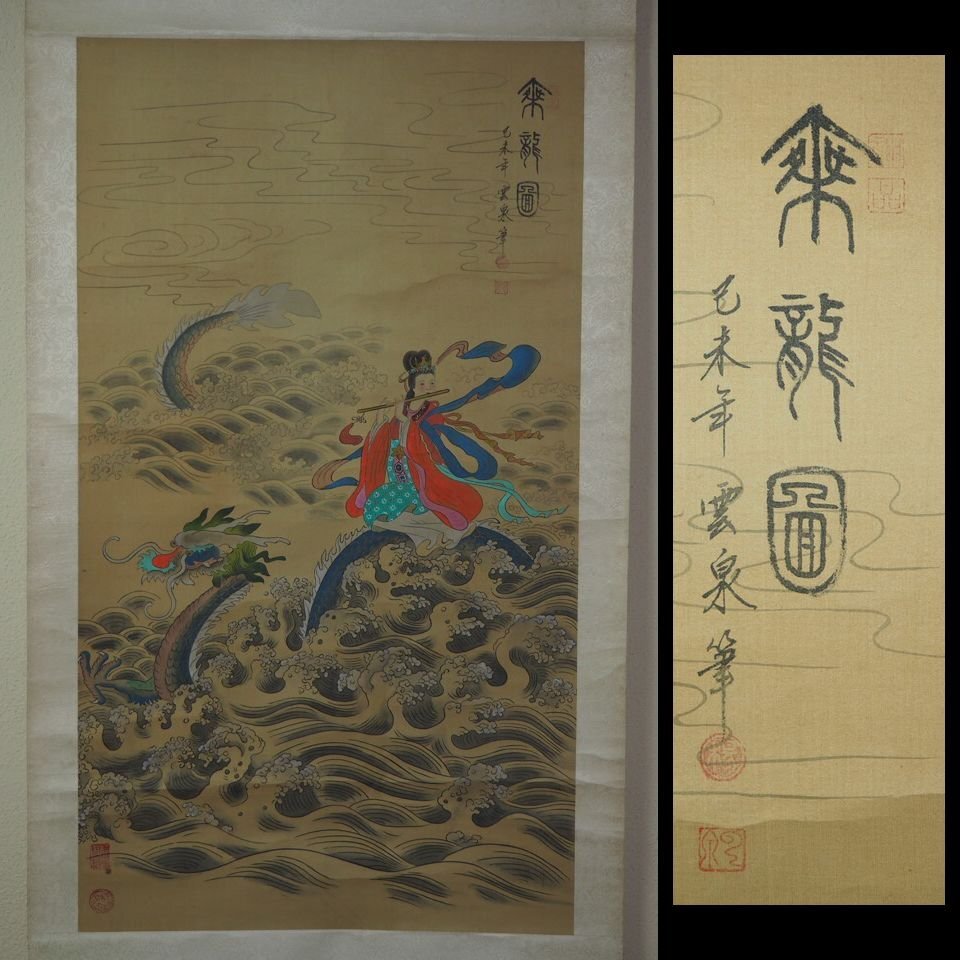 乘龍圖
己未年雲泉筆
乘龍圖
己未年雲泉筆